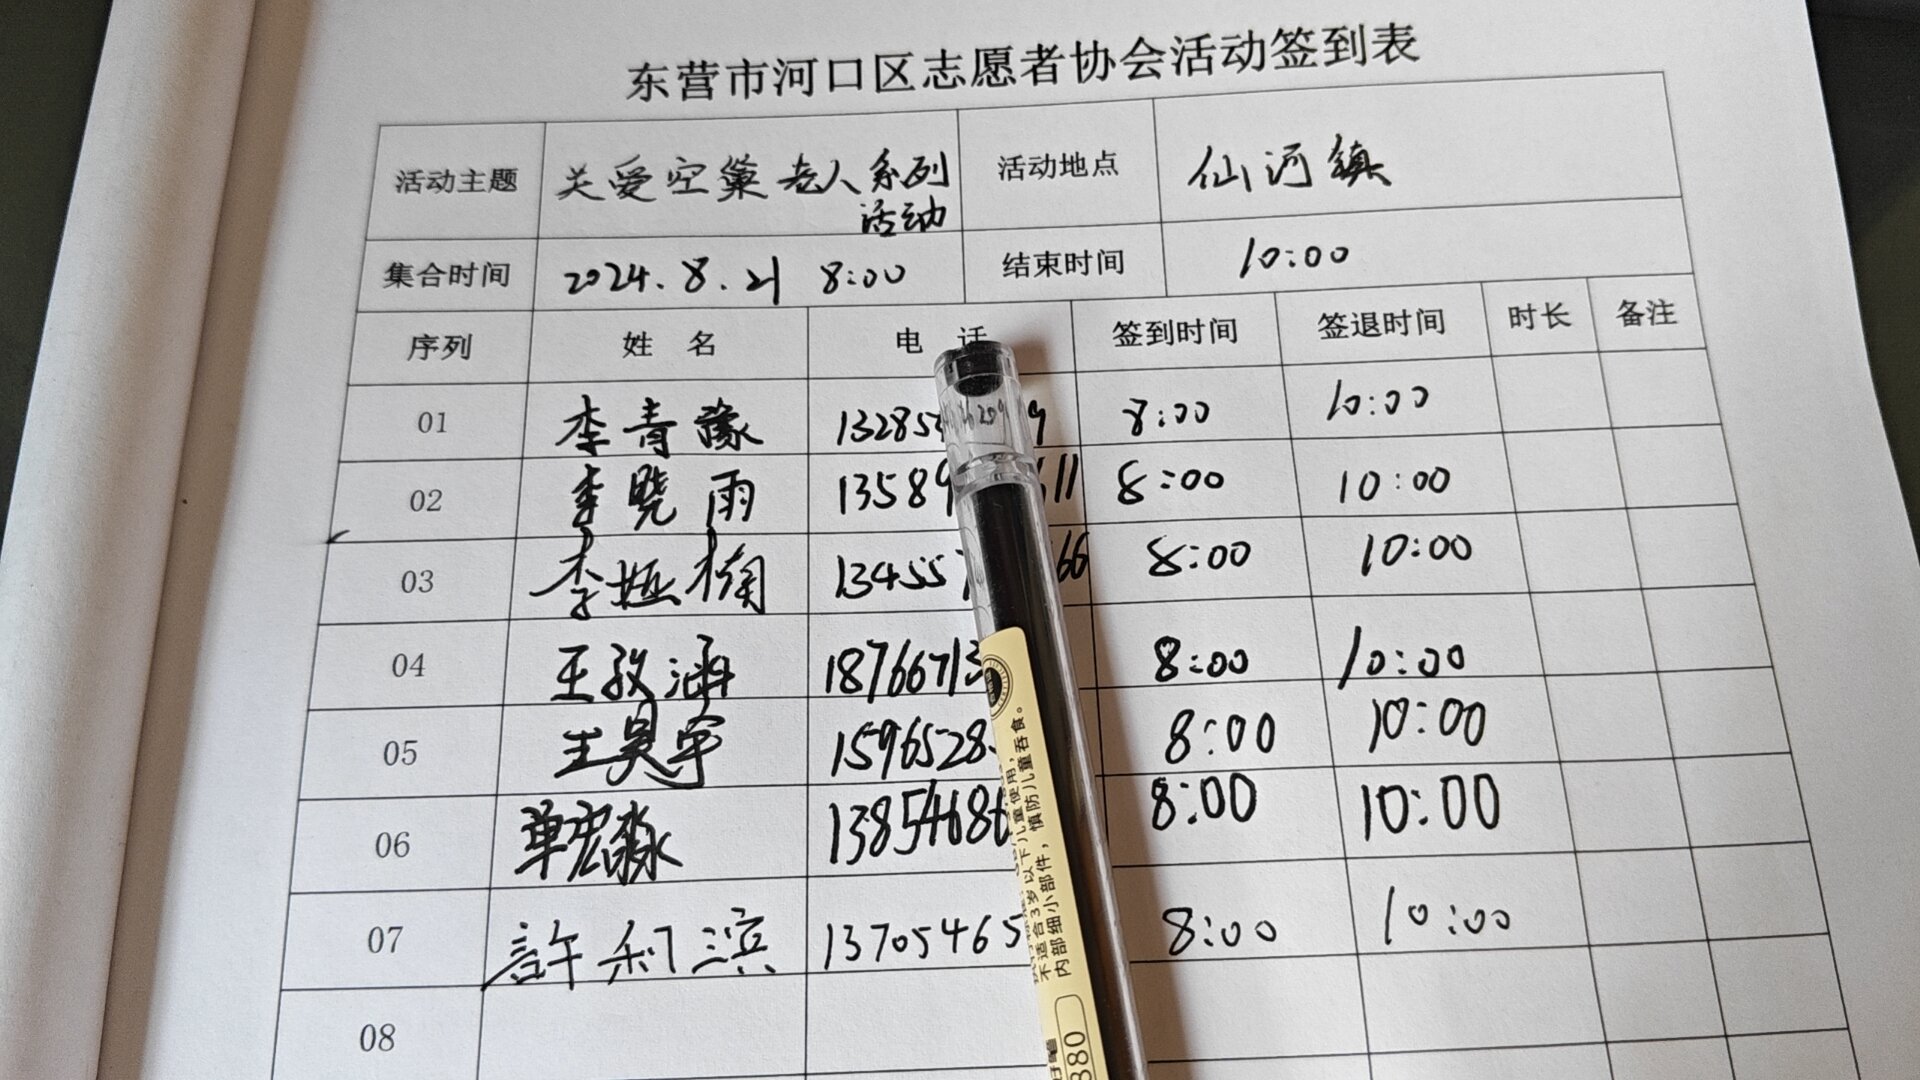 东营市河口区志愿者协会活动签到表
活动主题 关爱空巢老人系列活动 活动地点 仙河镇
集合时间 2024.8.21 8:00 结束时间 10:00
序列 姓名 电话 签到时间 签退时间 时长 备注
01 李青豫 13285 9 8:00 10:00
02 李晓雨 13589 611 8:00 10:00
03 李桠楠 134557 66 8:00 10:00
04 王孜涵 18766713 8:00 10:00
05 王昊宇 1596528 8:00 10:00
06 单宏淼 13854686 8:00 10:00
07 許利滨 13705465 8:00 10:00
08
不适合3岁以下儿童使用，
内部细小部件，慎防儿童吞食。
880